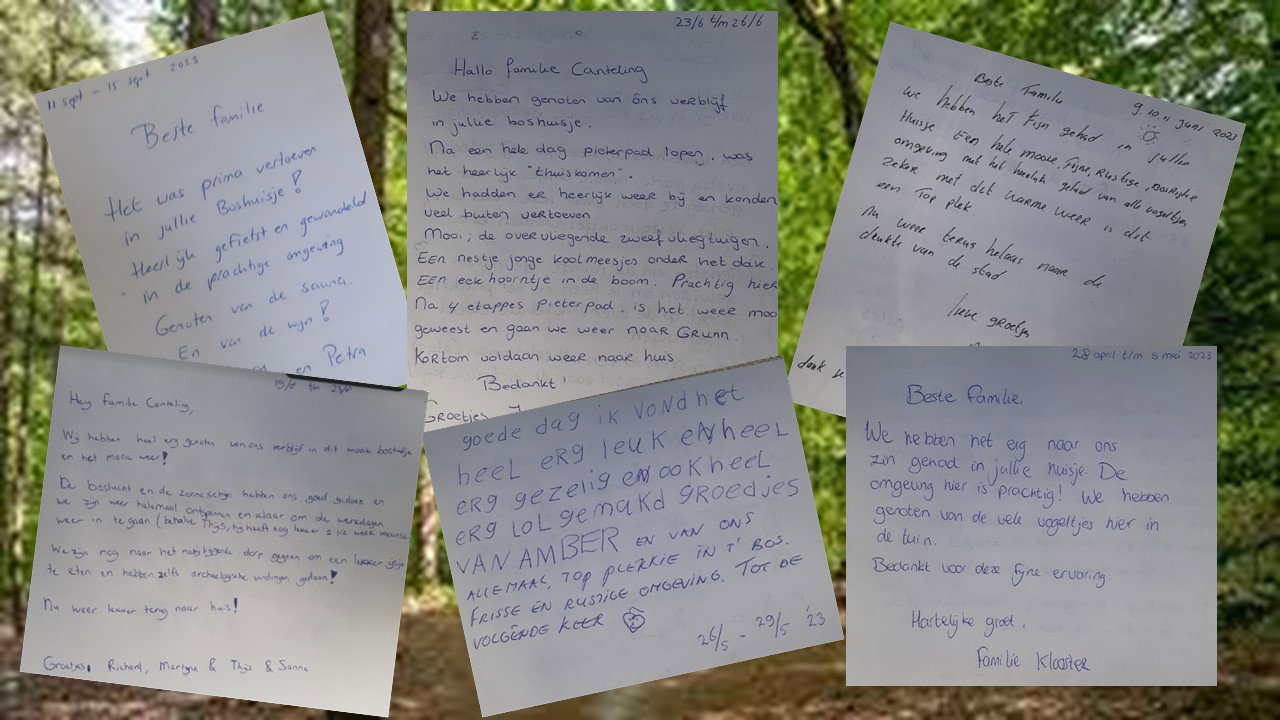 11 sept - 15 sept 2023
Beste familie
Het was prima vertoeven
in jullie Boshuisje!
Heerlijk gefietst en gewandeld
in de prachtige omgeving
Genoten van de sauna.
En van de wijn!
en Petra
23/6 t/m 26/6
Hallo familie Canteling
We hebben genoten van ons verblijf
in jullie boshuisje.
Na een hele dag pieterpad lopen, was
het heerlijk "thuiskomen".
We hadden er heerlijk weer bij en konden
veel buiten vertoeven.
Mooi; de overvliegende zweefvliegtuigen.
Een nestje jonge koolmeesjes onder het dak.
Een eekhoorntje in de boom. Prachtig hier
Na 4 etappes pieterpad, is het weer moo
geweest en gaan we weer naar Grunn.
Kortom voldaan weer naar huis.
Bedankt!
Groetjes
Beste Familie
9. 10. 11 Juni 2023
We hebben het Fijn gehad in jullie
Huisje Een hele mooie, Fijne, Rustige, Bosrijke
omgeving met het heerlijk geluid van alle vogeltjes
zeker met dit warme weer is dit
een Top plek.
Nu weer terug helaas naar de
drukte van de stad
lieve groetjes
dank
19/6 t/m 23/6
Hey familie Canteling,
Wij hebben heel erg genoten van ons verblijf in dit mooie boshuisje
en het mooie weer!
De boslucht en de zonneschijn hebben ons goed gedaan en
we zijn weer helemaal ontspannen en klaar om de werkdagen
weer in te gaan (behalve Thijs, hij heeft nog lekker 2 1/2 week vakantie
We zijn nog naar het nabijliggende dorp gegaan om een lekker ijsje
te eten en hebben zelfs archeologische vindingen gedaan!
Nu weer lekker terug naar huis!
Groetjes, Richard, Martijn & Thijs & Sanne
goede dag ik vond het
heel erg leuk en heel
erg gezelig en ook heel
erg lol gemakd groedjes
van AMBER EN VAN ONS
ALLEMAAL, TOP PLEKKIE IN T' BOS.
FRISSE EN RUSTIGE OMGEVING. TOT DE
VOLGENDE KEER
26/5 - 29/5 '23
28 april t/m 5 mei 2023
Beste familie,
We hebben het erg naar ons
zin gehad in jullie huisje. De
omgeving hier is prachtig! We hebben
genoten van de vele vogeltjes hier in
de tuin.
Bedankt voor deze fijne ervaring
Hartelijke groet,
Familie Klooster